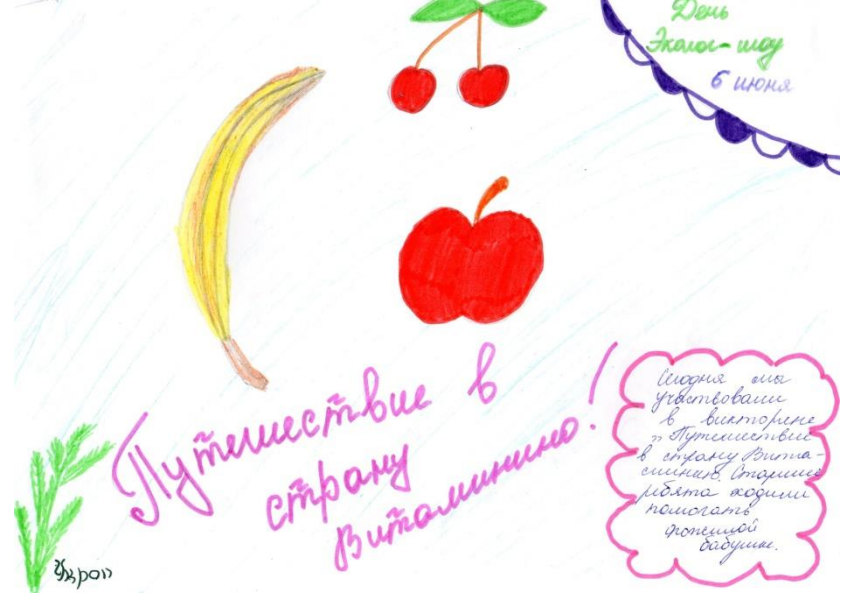 День
Эколог-шоу
6 июня
Путешествие в
страну
Витаминию!
Сегодня мы
участвовали
в викторине
"Путешествие
в страну Вита-
минию. Старшие
ребята ходили
помогать
пожилой
бабушке.
Укроп